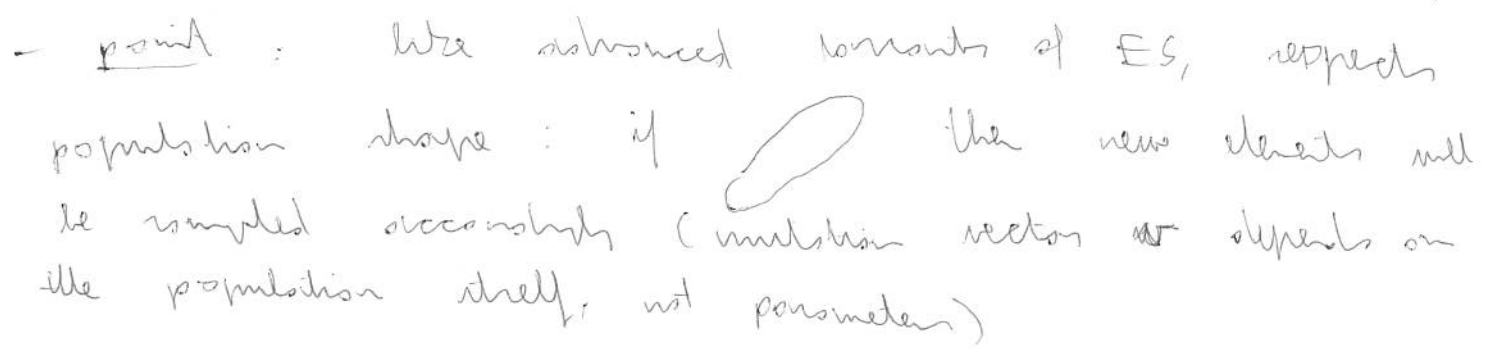 - point : like advanced variants of ES, respects
population shape : if then new elements will
be sampled accordingly (mutation vector depends on
the population itself, not parameters)